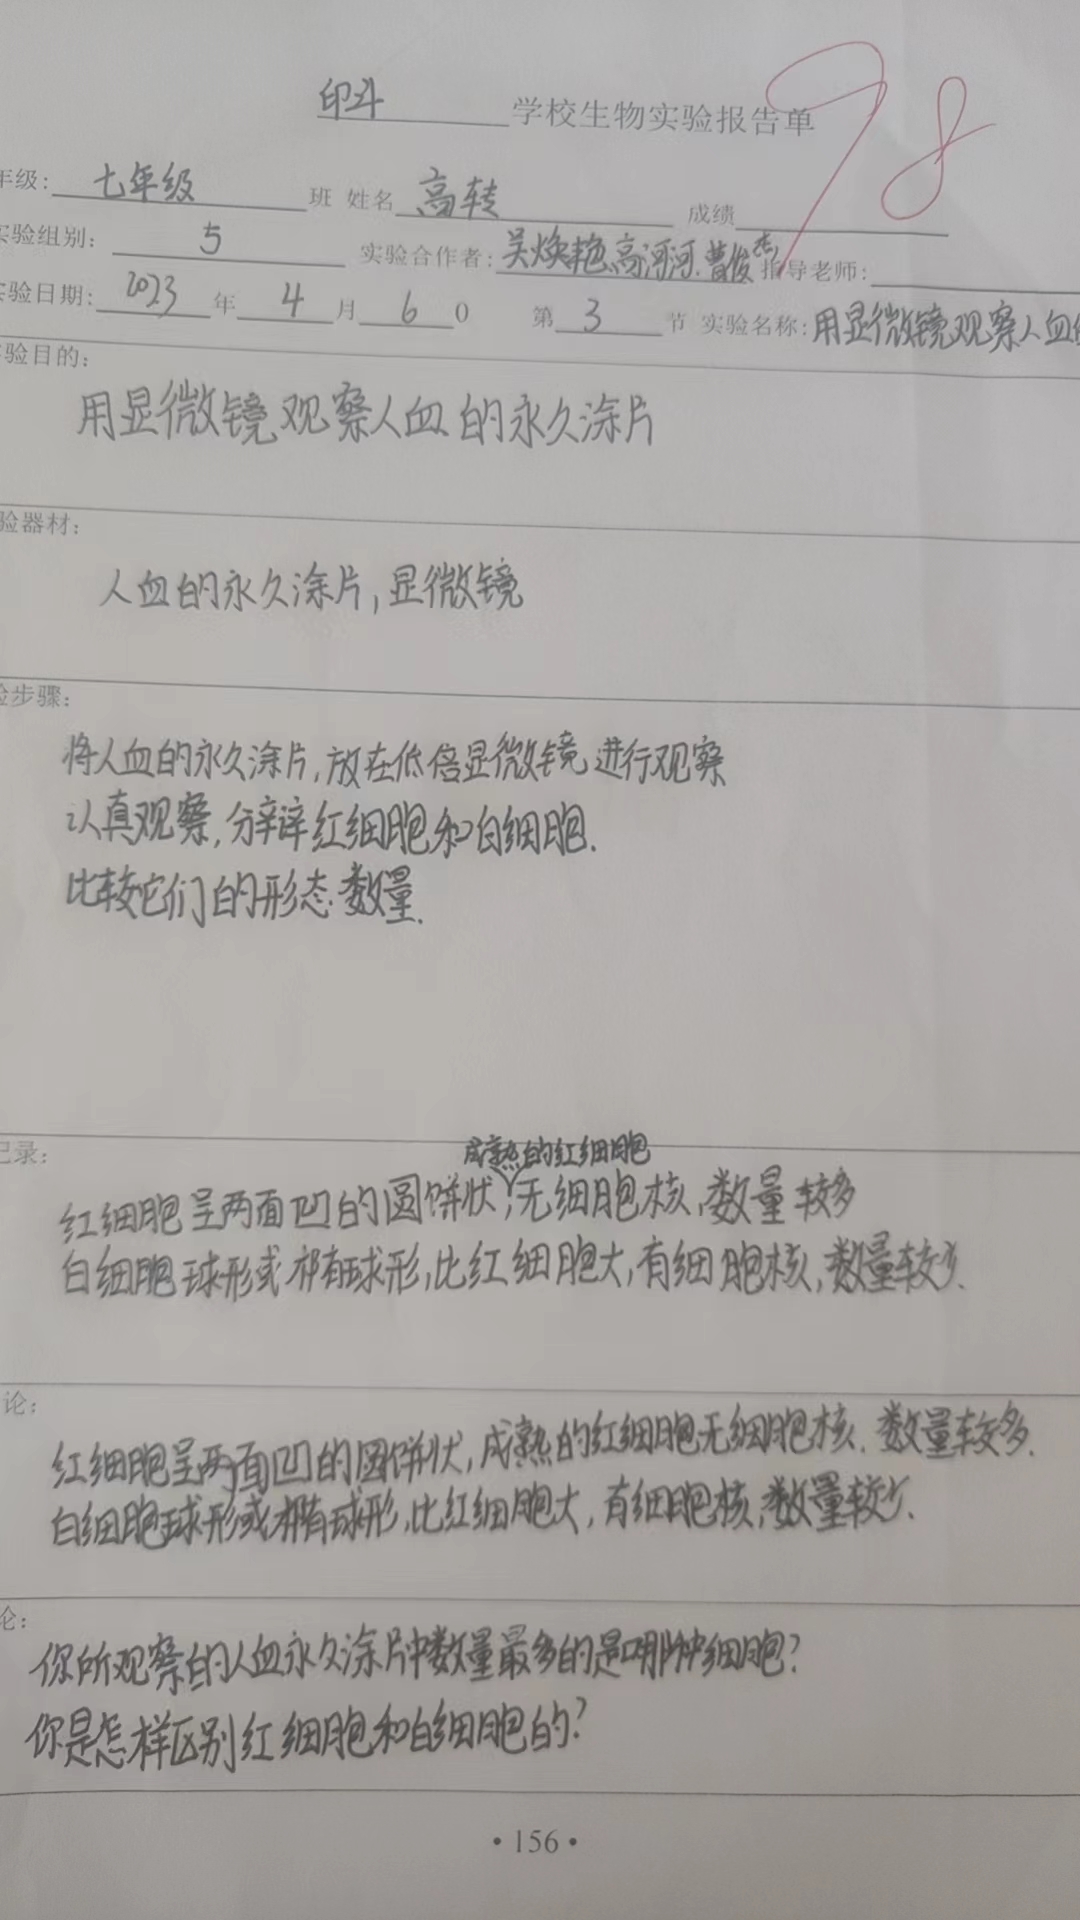 印斗学校生物实验报告单
98
年级:七年级班 姓名高转 成绩
实验组别:5 实验合作者:吴焕艳.高河河.曹俊杰 指导老师:
实验日期:2023年4月60 第3节 实验名称:用显微镜观察人血
验目的:
用显微镜观察人血的永久涂片
验器材:
人血的永久涂片,显微镜
步骤:
将人血的永久涂片,放在低倍显微镜进行观察
认真观察,分辩红细胞和白细胞.
比较它们的形态.数量.
记录:
成熟的红细胞
红细胞呈两面凹的圆饼状,无细胞核,数量较多
白细胞球形或 球形,比红细胞大,有细胞核,数量较少.
论:
红细胞呈两面凹的圆饼状,成熟的红细胞无细胞核.数量较多.
白细胞球形或 球形,比红细胞大,有细胞核,数量较少.
论:
你所观察的人血永久涂片中数量最多的是哪种细胞?
你是怎样区别红细胞和白细胞的?
•156•